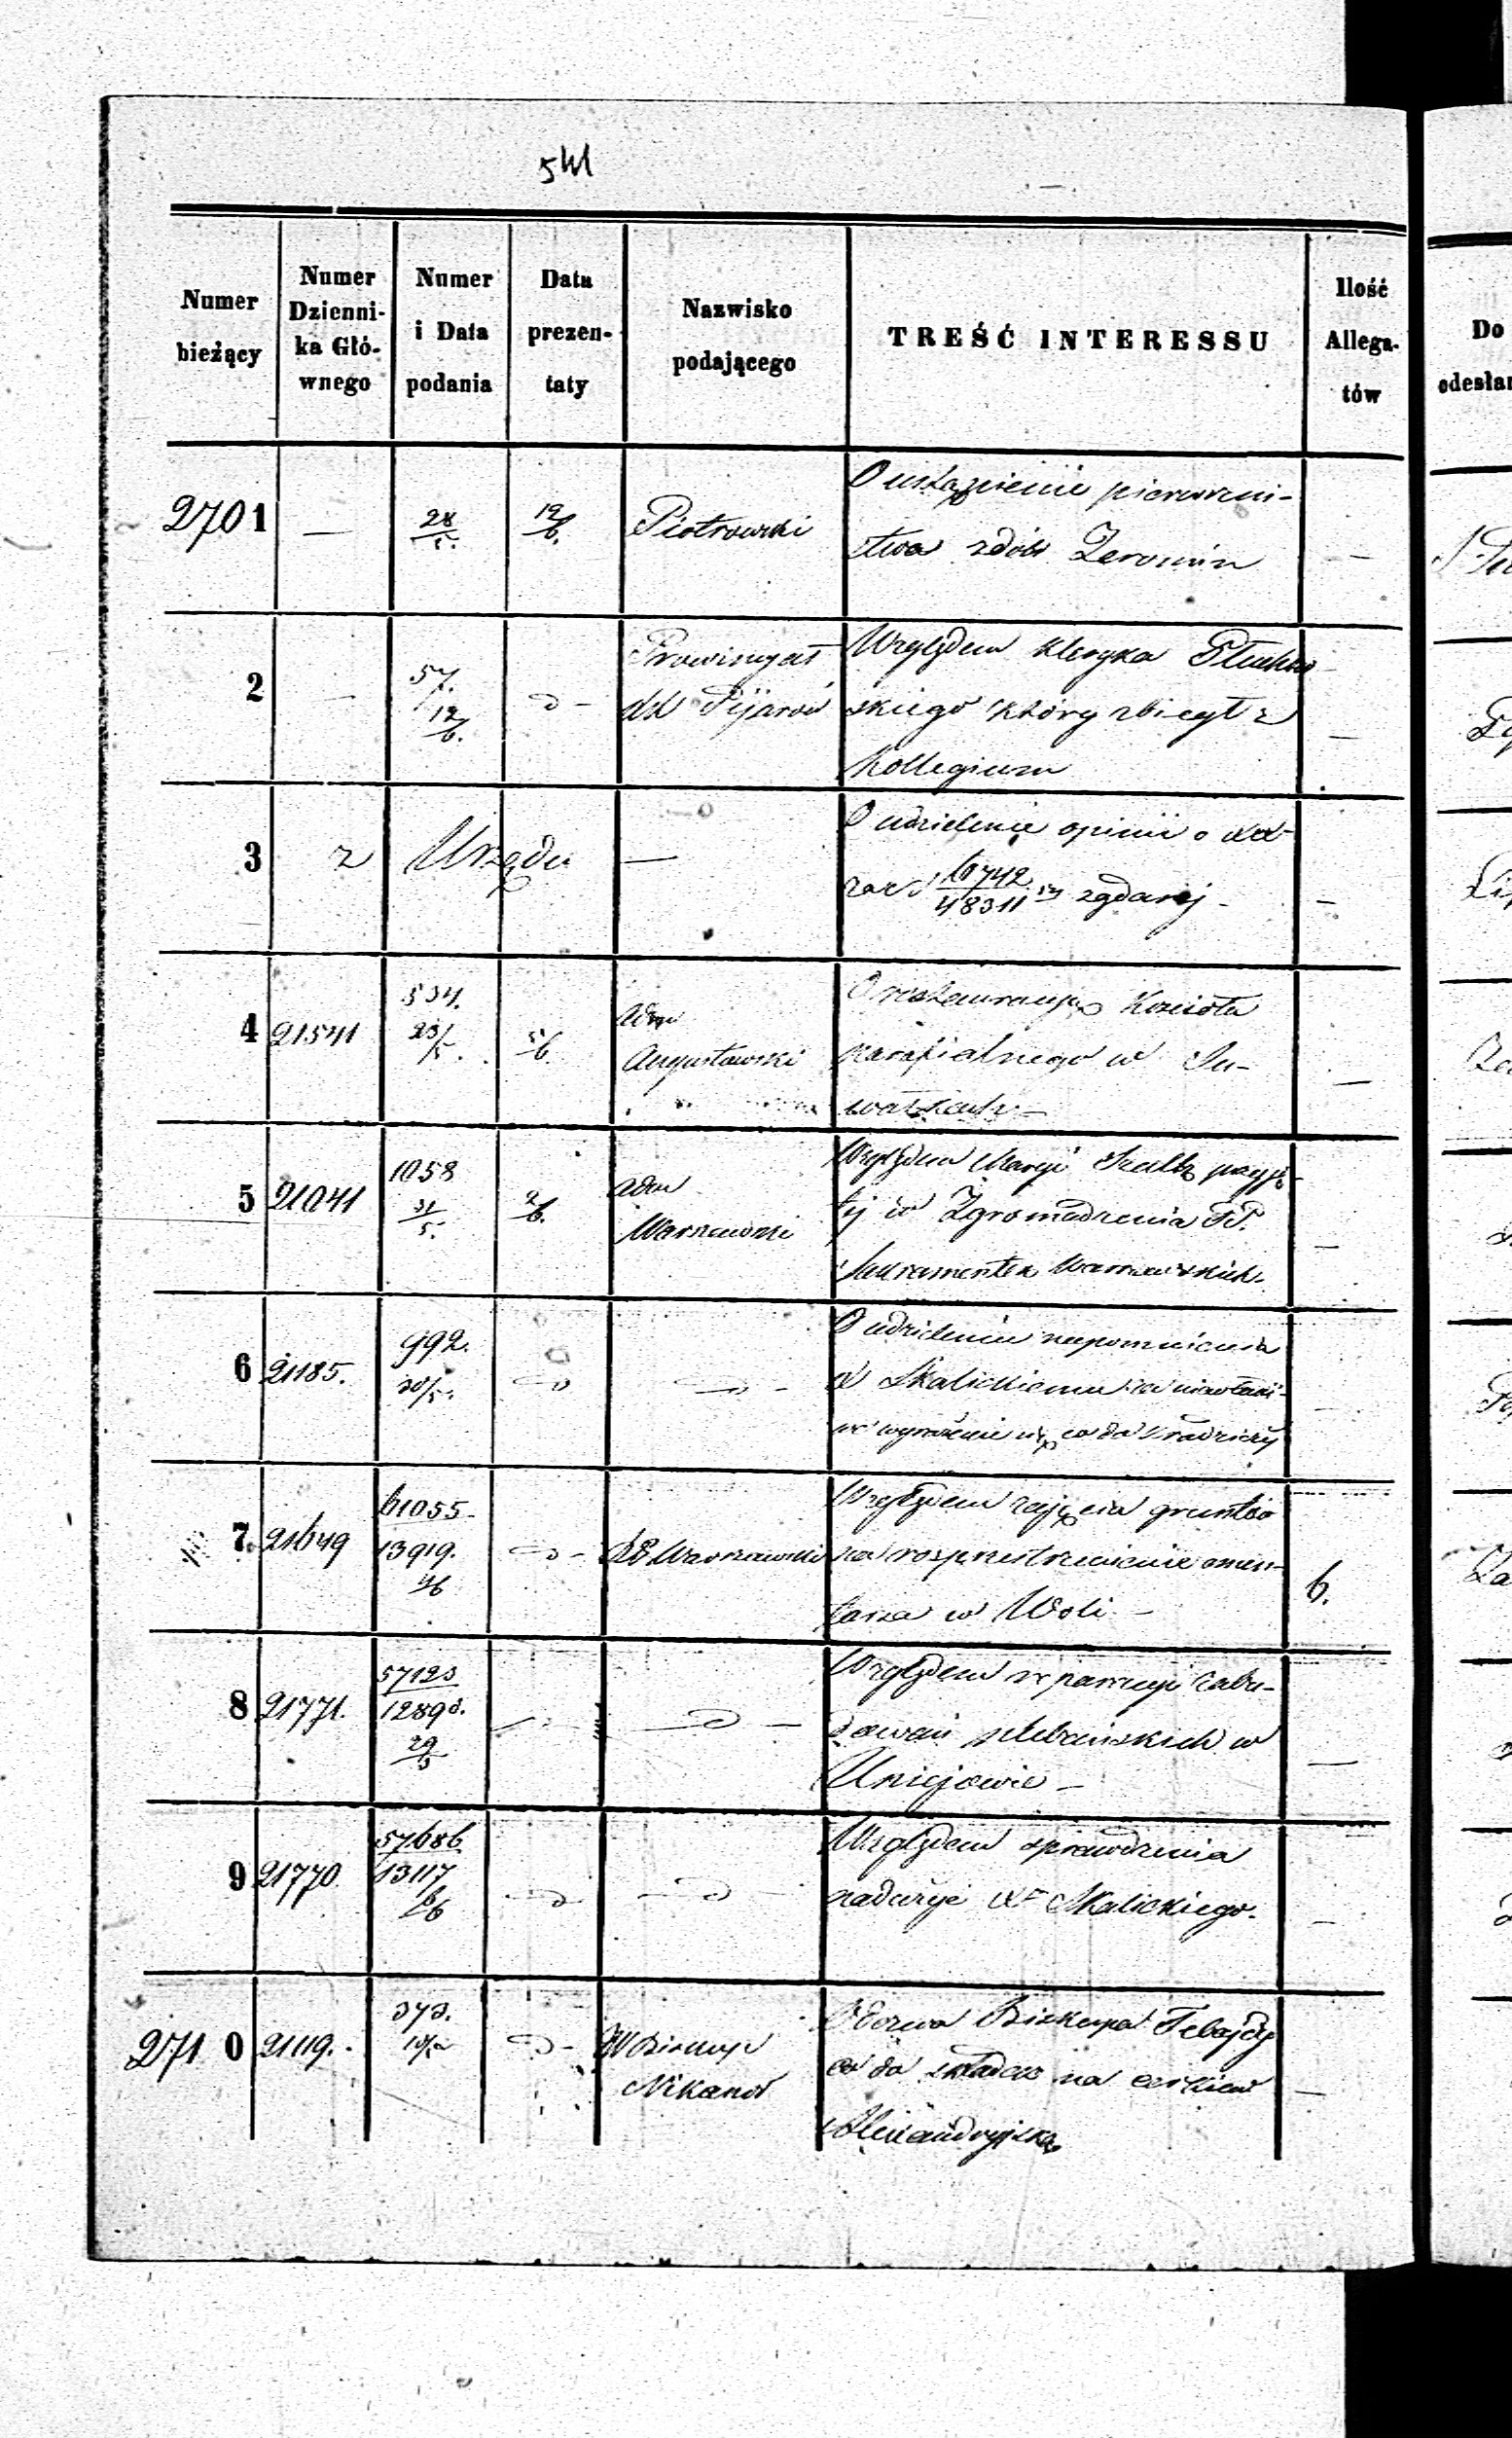 541
Numer bieżący
Numer Dzienni-ka Głó-wnego
Numer i Data podania
Data prezen-taty
Nazwisko podającego
TREŚĆ INTERESSU
Ilość Allega-tów
Do
2701 — 28/5. 12/6. Piotrowski
O ustąpienie pierwszeń-
stwa dóbr Żeromin
—
2 — 57. 12/6. Prowincyał
XX Pijarów
Względem kleryka
skiego który zbiegł z
Kollegium
—
3 z Urzędu —
O udzielenie opinii o
6742/48311 zgdanej -
—
4 21541 534. 23/5. 5/6 Adm
Augustowski
O restauracyą Kościoła
parafialnego w Su-
wałkach —
—
5 21041 1058 31/5. 2/6. Adm
Warszawski
Względem Maryi przyję-
tej w Zgromadzenia PP.
Sakramentek Warszawskich.
—
6 21185. 992. 30/5.
O udzielenie napomnienia
X Skalickiemu za niewłaści-
we wyrażenie się co do
7. 21649 61055 13919. 4/6 RG Warszawski
Względem zajęcia gruntów
na rozprzestrzenienie cmen-
tarza w Woli —
6.
8 21771. 57123 12893. 29/5
Względem reparacyi zabu-
dowań plebańskich w
Uniejowie —
—
9 21770. 57686 13117 6/6
Względem sprawdzenia
nadużyć Xa Skalickiego.
—
2710 2119. 373. JW Biskup
Nikanor
Odezwa Biskupa
co do składek na cerkiew
Alexandryjską
—